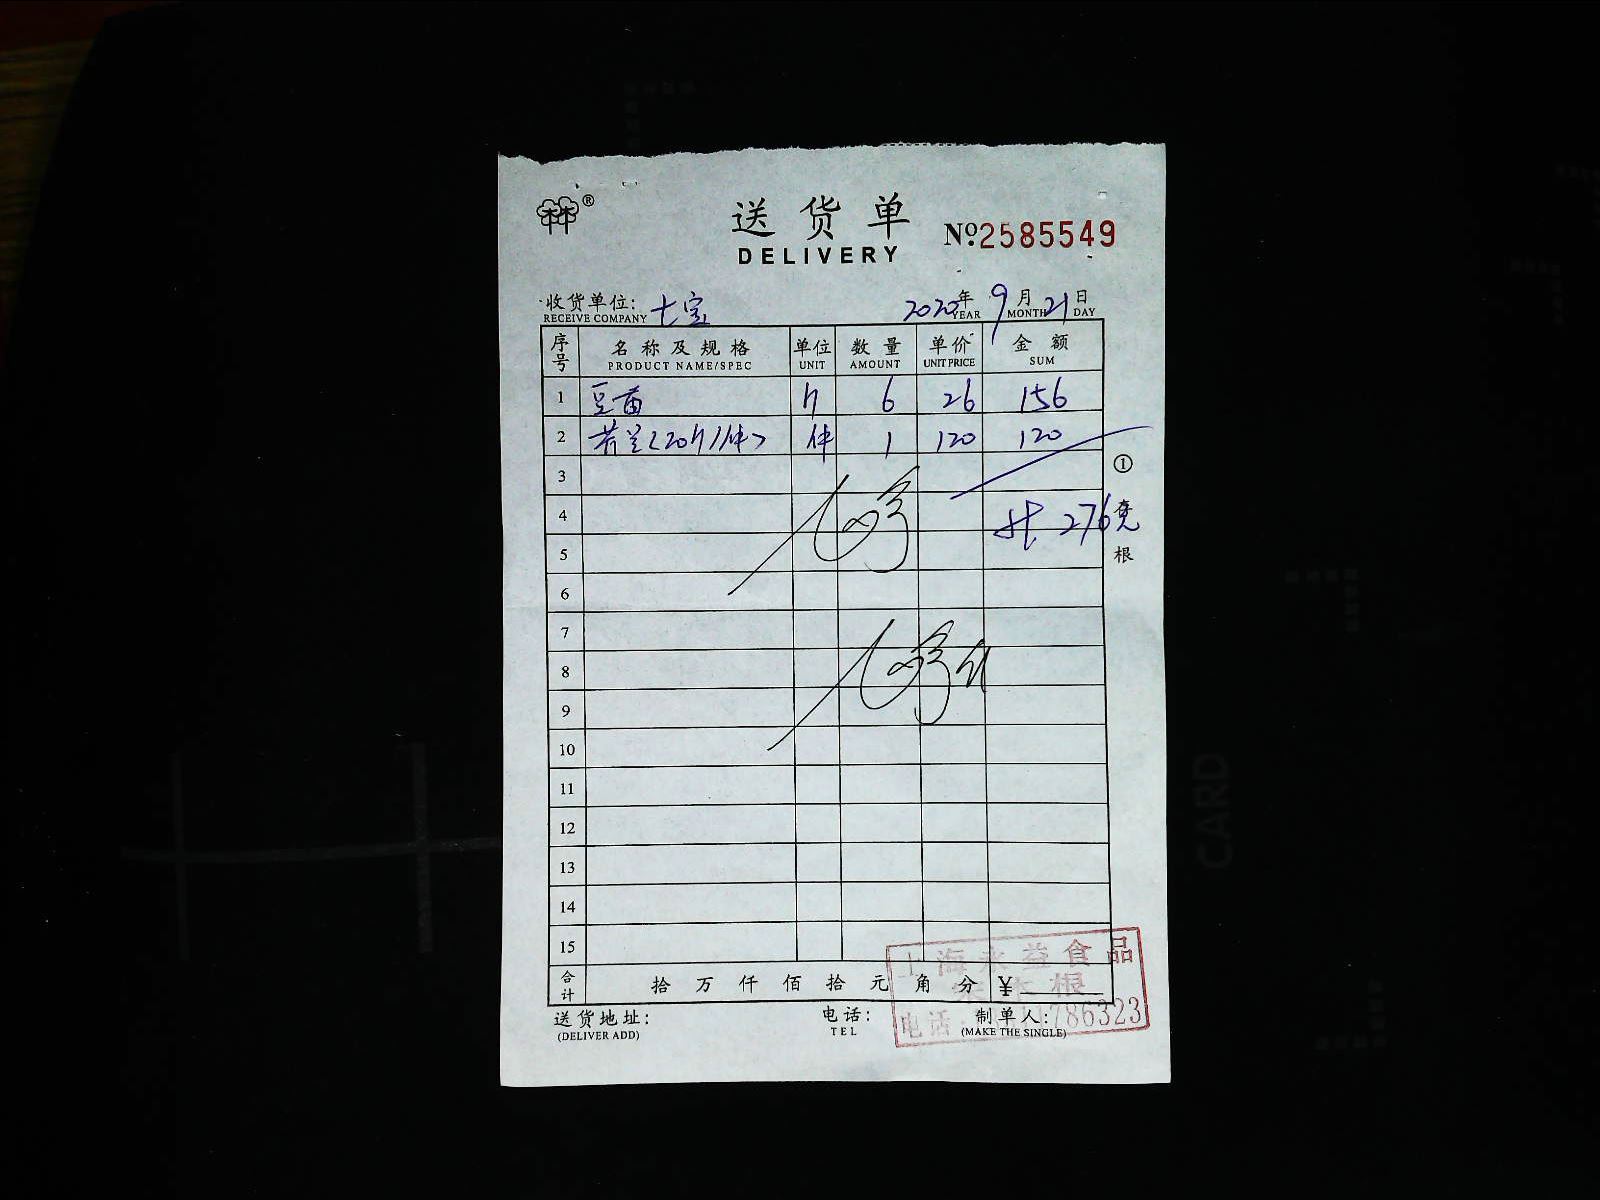 林®
送货单
DELIVERY
Nº2585549
收货单位: 七宝 2020年 9月 21日
RECEIVE COMPANY YEAR MONTH DAY
序号 名称及规格 单位 数量 单价 金额
PRODUCT NAME/SPEC UNIT AMOUNT UNIT PRICE SUM
1 豆苗 斤 6 26 156
2 芥兰(20斤/件) 件 1 120 120
3
①
4 共 276元
存
5
根
6
7
8
9
10
11
12
13
14
15
上海永益食品
合计 拾 万 仟 佰 拾 元 角 分 ¥
根
送货地址: 电话: 制单人:
(DELIVER ADD) TEL (MAKE THE SINGLE)
电话 786323
CARD